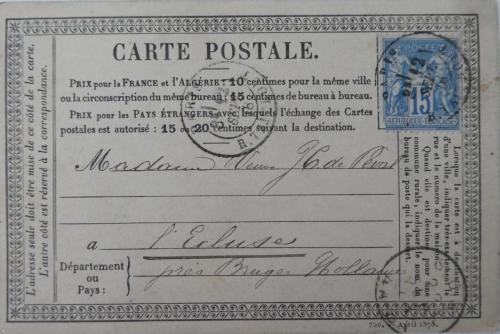 CARTE POSTALE.
PRIX pour la FRANCE et l'ALGÉRIE: 10 centimes pour la même ville
ou la circonscription du même bureau; 15 centimes de bureau à bureau.
PRIX pour les PAYS ÉTRANGERS avec lesquels l'échange des Cartes
postales est autorisé: 15 ou 20 centimes suivant la destination.
Madame Veuve H. de
a l'Ecluse
Département
ou
Pays:
près Bruges Hollande
L'adresse seule doit être mise de ce côté de la carte.
L'autre côté est réservé à la correspondance.
Lorsque la carte est à destination
d'une ville, indiquer très-exactement la
rue et le numéro de la maison.
Quand elle est destinée pour une
commune rurale, indiquer le nom du
bureau de poste qui la dessert.
POSTES
15
REPUBLIQUE FRANCAISE
Avril 1878.